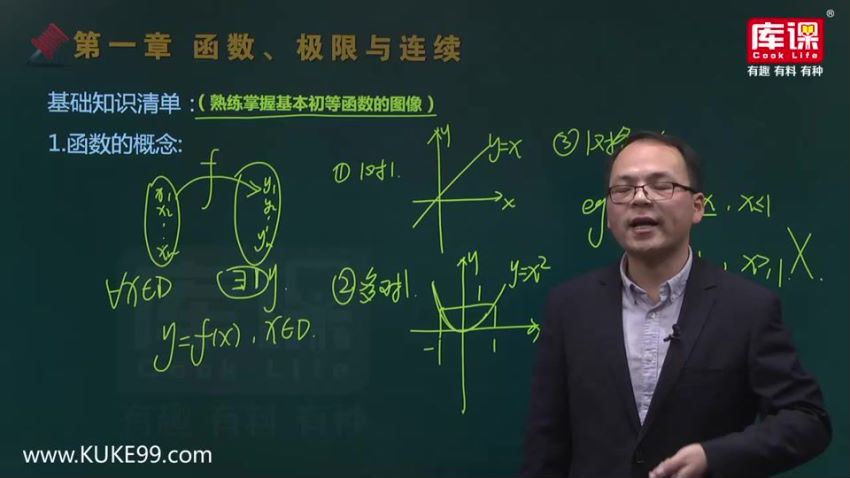 第一章 函数、极限与连续
库课®
Cook Life
有趣 有料 有种
基础知识清单：(熟练掌握基本初等函数的图像)
1.函数的概念:
f
x₁
x₂
⋮
xₙ
y₁
y₂
⋮
yₙ
∀x∈D
∃1 y.
y=f(x), x∈D.
① 1对1.
y
y=x
x
② 多对1.
y
y=x²
1
-1
1
x
③ 1对
eg
x, x≤1
, x≥1
X
库课
有趣 有料 有种
www.KUKE99.com